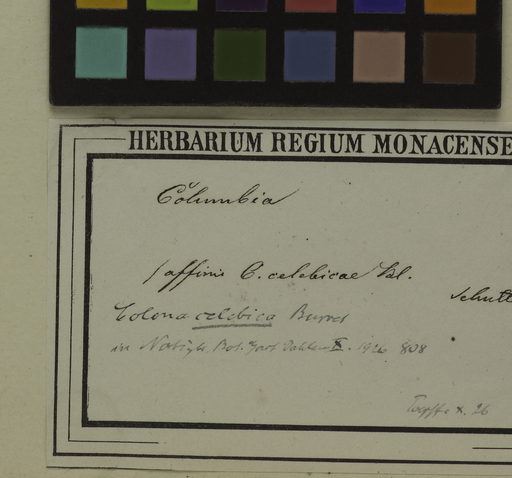 HERBARIUM REGIUM MONACENSE
Columbia
affinis C. celebicae Bl.
Colona celebica Burret
in Notizbl. Bot. Gart. Dahlem X. 1926 808
X. 26